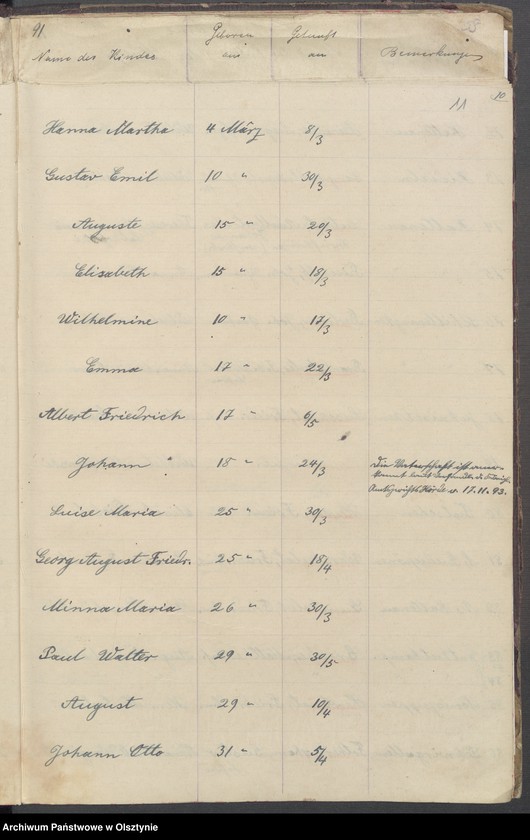 91.
Name des Kindes
Geboren am
Getauft am
Bemerkungen
11
10
Hanna Martha 4 März 8/3
Gustav Emil 10 " 30/3
Auguste 15 " 20/3
Elisabeth 15 " 18/3
Wilhelmine 10 " 17/3
Emma 17 " 22/3
Albert Friedrich 17 " 6/5
Johann 18 " 24/3 Die Vaterschaft ist aner-
kannt laut d. Königl.
Amtsgerichts Hörde v. 17.11.93.
Luise Maria 25 " 30/3
Georg August Friedr. 25 " 18/4
Minna Maria 26 " 30/3
Paul Walter 29 " 30/5
August 29 " 10/4
Johann Otto 31 " 5/4
Archiwum Państwowe w Olsztynie